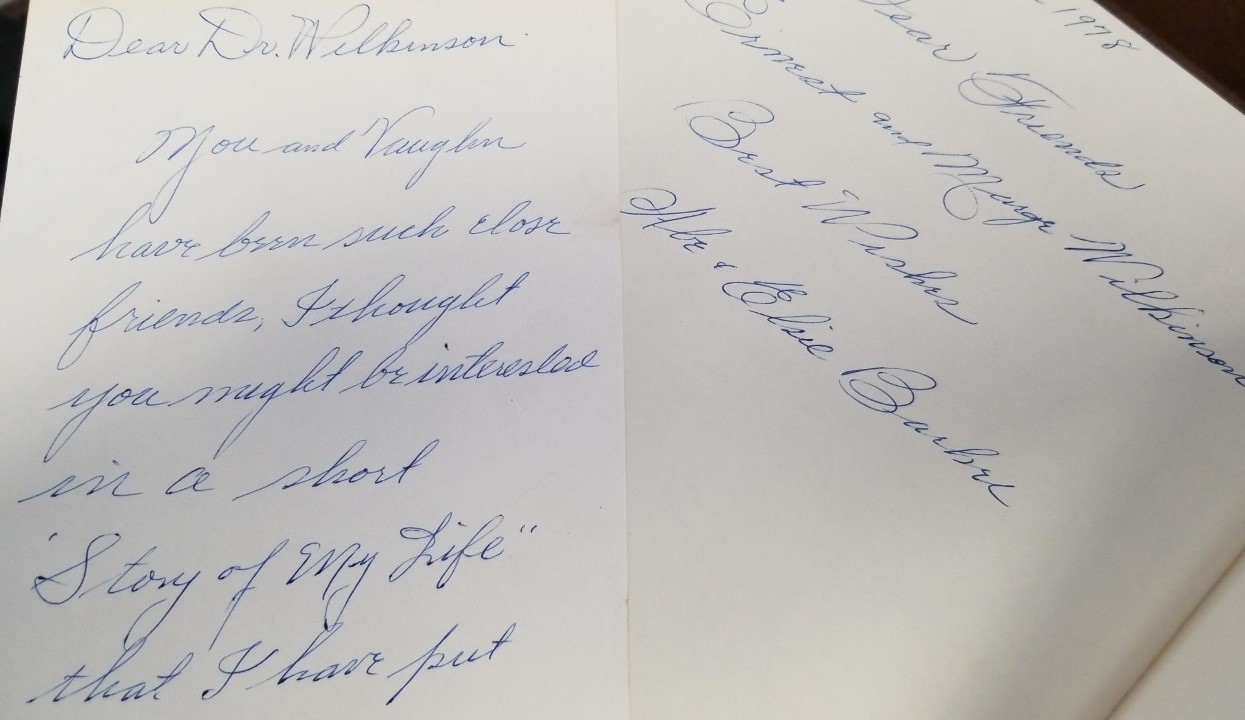 Dear Dr. Wilkinson
You and Vaughn
have been such close
friends, I thought
you might be interested
in a short
"Story of My Life"
that I have put
1978
Dear Friends
Ernest and Marge Wilkinson
Best Wishes
Abe & Elsie Barber